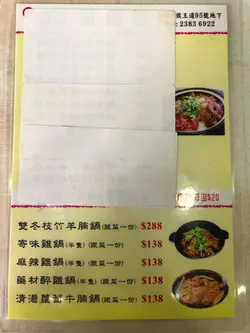 侯王道95號地下
: 2383 6922
$20
雙冬枝竹羊腩鍋(跟菜一份) $288
奇味雞鍋(半隻)(跟菜一份) $138
麻辣雞鍋(半隻)(跟菜一份) $138
藥材醉雞鍋(半隻)(跟菜一份) $138
清湯蘿蔔牛腩鍋(跟菜一份) $138